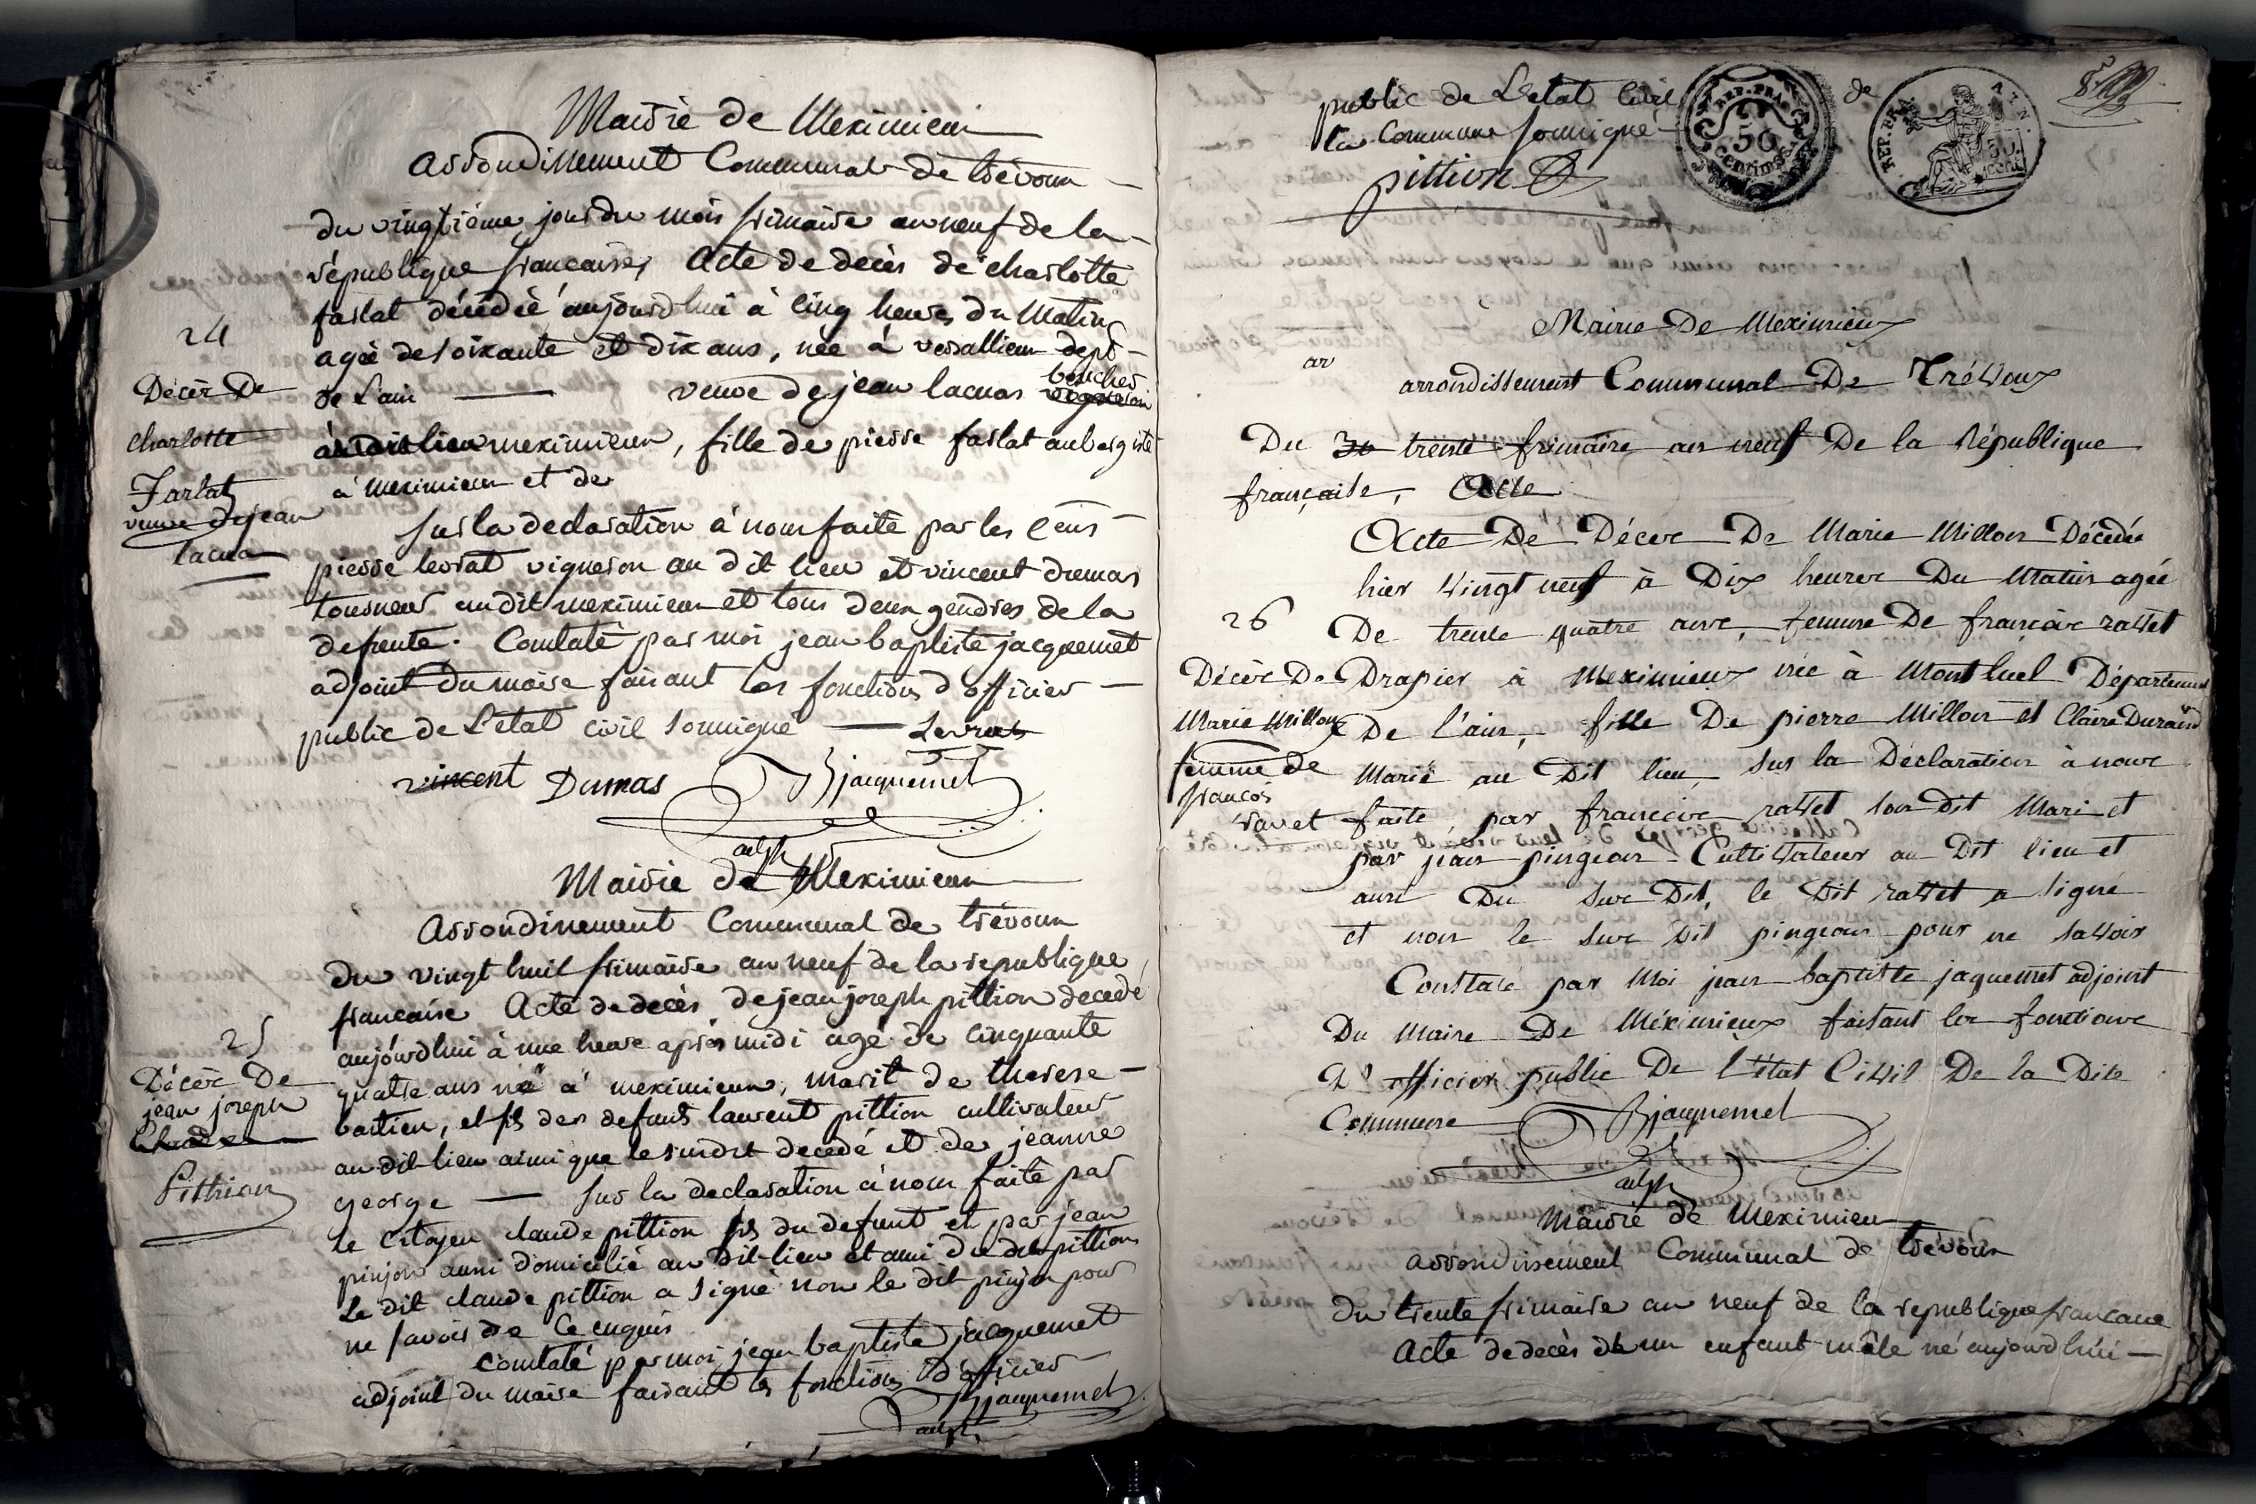 Mairie de Meximieux
arrondissement Communal de trévoux
du vingtième jour du mois frimaire an neuf de la
république francaise, Acte de decès de charlotte
farlat décédée aujourd'hui à cinq heures du matin
agée de soixante et dix ans, née à versallieux dept
de L'ain veuve de jean lacuas boucher
à meximieux, fille de pierre farlat aubergiste
à meximieux et de
24
Décès De
charlotte
Farlat
veuve de jean
lacua
sur la declaration à nous faite par les Cens
pierre levrat vigneron au dit lieu et vincent dumas
tourneur au dit meximieux et tous deux gendres de la
defunte. Contaté par moi jean baptiste jacquemet
adjoint du maire faisant les fonctions d'officier
public de L'etat civil soussigné Levrat
vincent Dumas Bjacquemet
adjt
Mairie de Meximieux
arrondissement Communal de trévoux
du vingt huit frimaire an neuf de la republique
francaise Acte de decès de jean joseph pittion decedé
aujourd'hui à une heure après midi agé de cinquante
quatre ans né à meximieux, marit de therese
bastien, et fils des defunts laurent pittion cultivateur
au dit lieu ainsi que le susdit decedé et de jeanne
george sur la declaration à nous faite par
le citoyen claude pittion fils du defunt et par jean
pinjon aussi domicilié au dit lieu et ami du dit pittion
le dit claude pittion a signé non le dit pinjon pour
ne savoir de ce enquis
Contaté par moi jean baptiste jacquemet
adjoint du maire faisant les fonctions d'officier
Bjacquemet
adjt
25
Décès De
jean joseph
Pithion
public de L'etat Civil de
la Commune soussigné
pittion
REP. FRA. 50 centimes
REP. FRA. 50 cent
Mairie De Meximieux
ar
arrondissement Communal De Trévoux
Du 30 trente frimaire an neuf De la République
française, Acte
Acte De Décès De Marie Millon Décédée
hier vingt neuf à Dix heures Du Matin agée
De trente quatre ans, femme De françois ravet
Drapier à Meximieux née à Montluel Département
De l'ain, fille De pierre Millon et Claire Durand
Marié au Dit lieu, sur la Déclaration à nous
faite par françois ravet son dit Mari et
par jean pingeon Cultivateur au Dit lieu et
ami Du sus Dit, le Dit ravet a signé
et non le sus Dit pingeon pour ne savoir
26
Décès De
Marie Millon
femme de
francois
ravet
Constaté par Moi jean baptiste jaquemet adjoint
Du Maire De Méximieux faisant les fonctions
D'officier public De l'état Civil De la Dite
Commune Bjacquemet
adjt
Mairie de Meximieux
arrondissement Communal de trévoux
du trente frimaire an neuf de la republique francaise
Acte de decès d'un enfant mâle né aujourd'hui